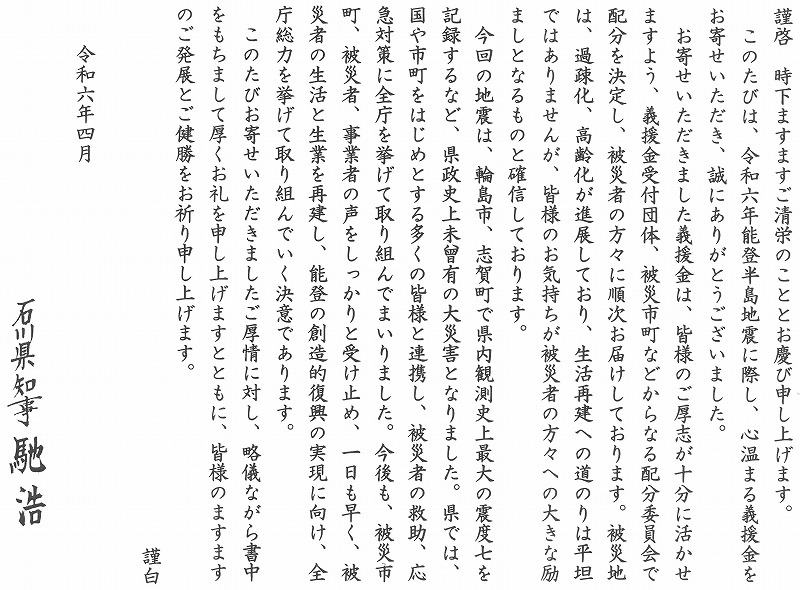 謹啓　時下ますますご清栄のこととお慶び申し上げます。
　このたびは、令和六年能登半島地震に際し、心温まる義援金を
お寄せいただき、誠にありがとうございました。
　お寄せいただきました義援金は、皆様のご厚志が十分に活かせ
ますよう、義援金受付団体、被災市町などからなる配分委員会で
配分を決定し、被災者の方々に順次お届けしております。被災地
は、過疎化、高齢化が進展しており、生活再建への道のりは平坦
ではありませんが、皆様のお気持ちが被災者の方々への大きな励
ましとなるものと確信しております。
　今回の地震は、輪島市、志賀町で県内観測史上最大の震度七を
記録するなど、県政史上未曾有の大災害となりました。県では、
国や市町をはじめとする多くの皆様と連携し、被災者の救助、応
急対策に全庁を挙げて取り組んでまいりました。今後も、被災市
町、被災者、事業者の声をしっかりと受け止め、一日も早く、被
災者の生活と生業を再建し、能登の創造的復興の実現に向け、全
庁総力を挙げて取り組んでいく決意であります。
　このたびお寄せいただきましたご厚情に対し、略儀ながら書中
をもちまして厚くお礼を申し上げますとともに、皆様のますます
のご発展とご健勝をお祈り申し上げます。
謹白
令和六年四月
石川県知事 馳浩